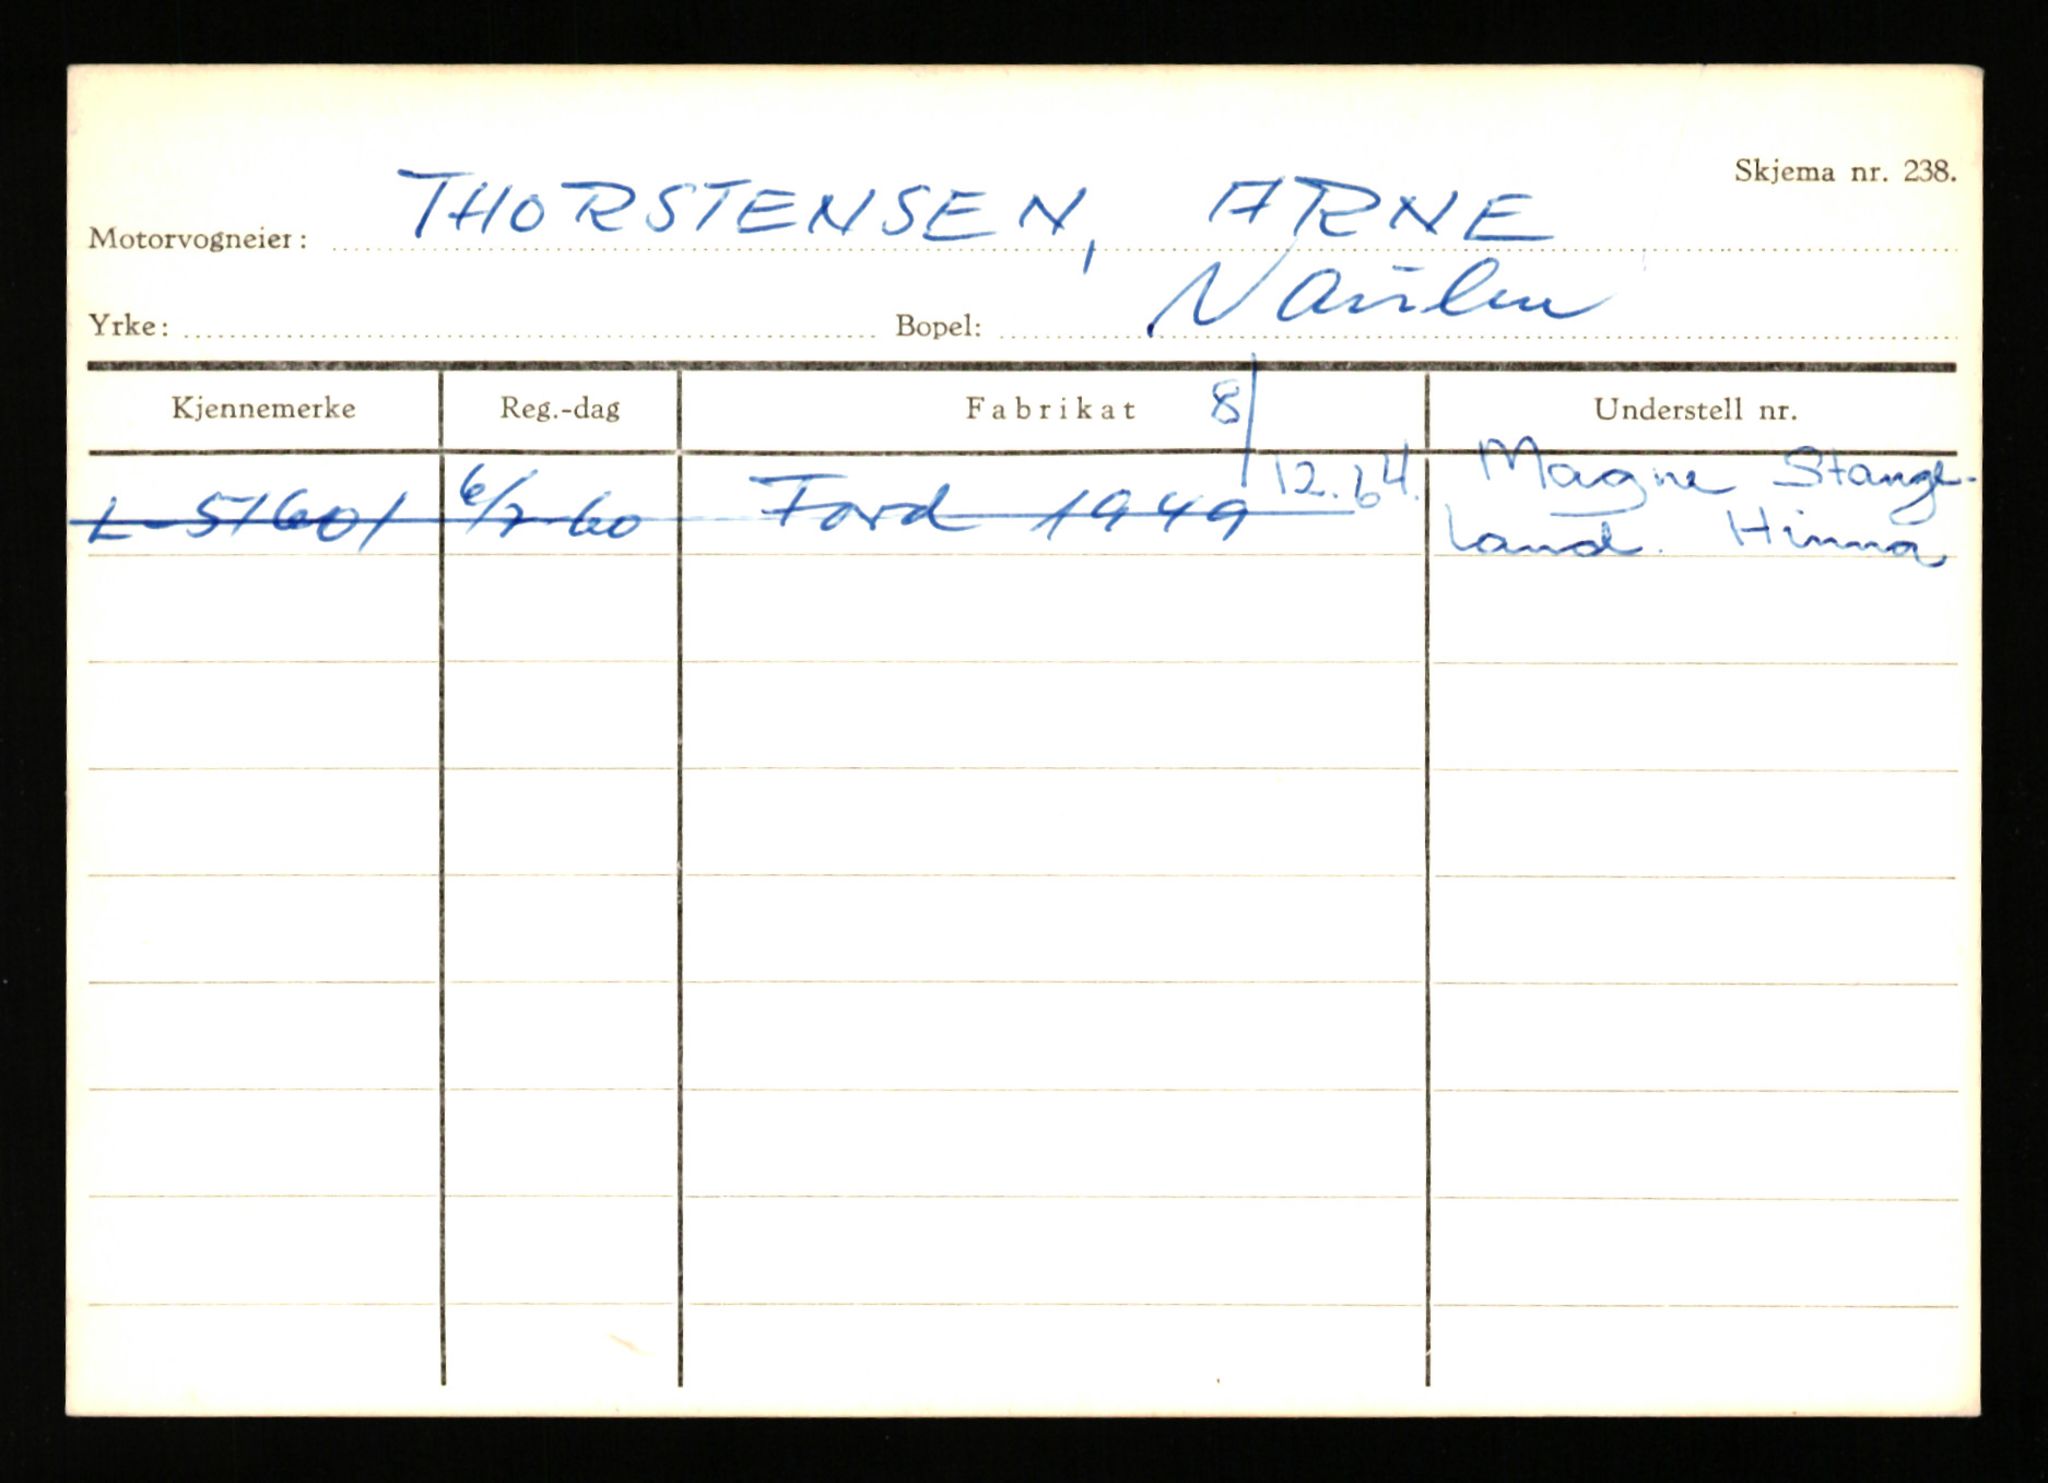 Skjema nr. 238.
Motorvogneier: THORSTENSEN, ARNE
Yrke: Bopel:
Kjennemerke Reg.-dag Fabrikat Understell nr.
8/12.64. Magne Stange-
L-51601 6/7 60 Ford 1949 land. Hinna